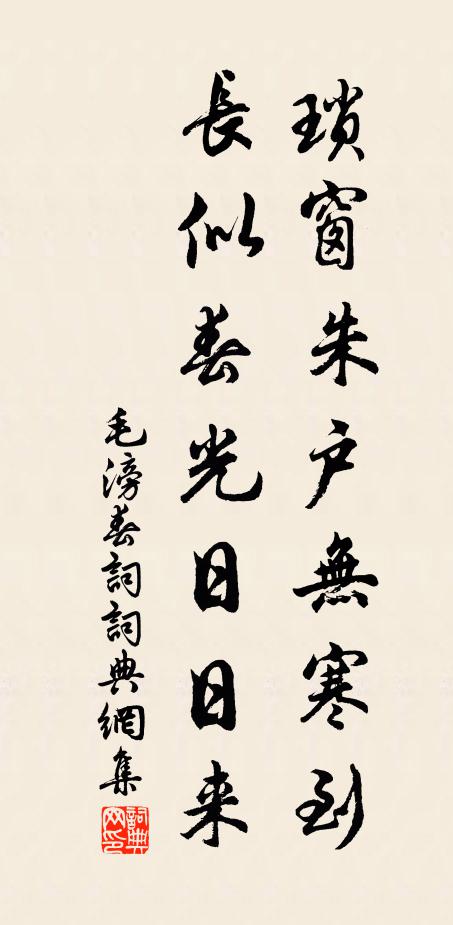 瑣窗朱户無寒到
長似春光日日来
毛滂春詞詞典網集
詞典網印